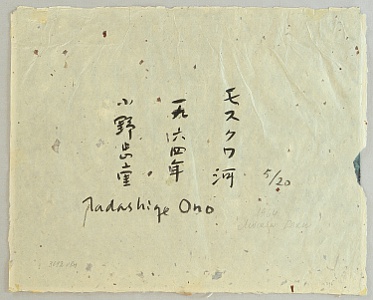 モスクワ河
一九六四年
小野忠重
5/20
Tadashige Ono